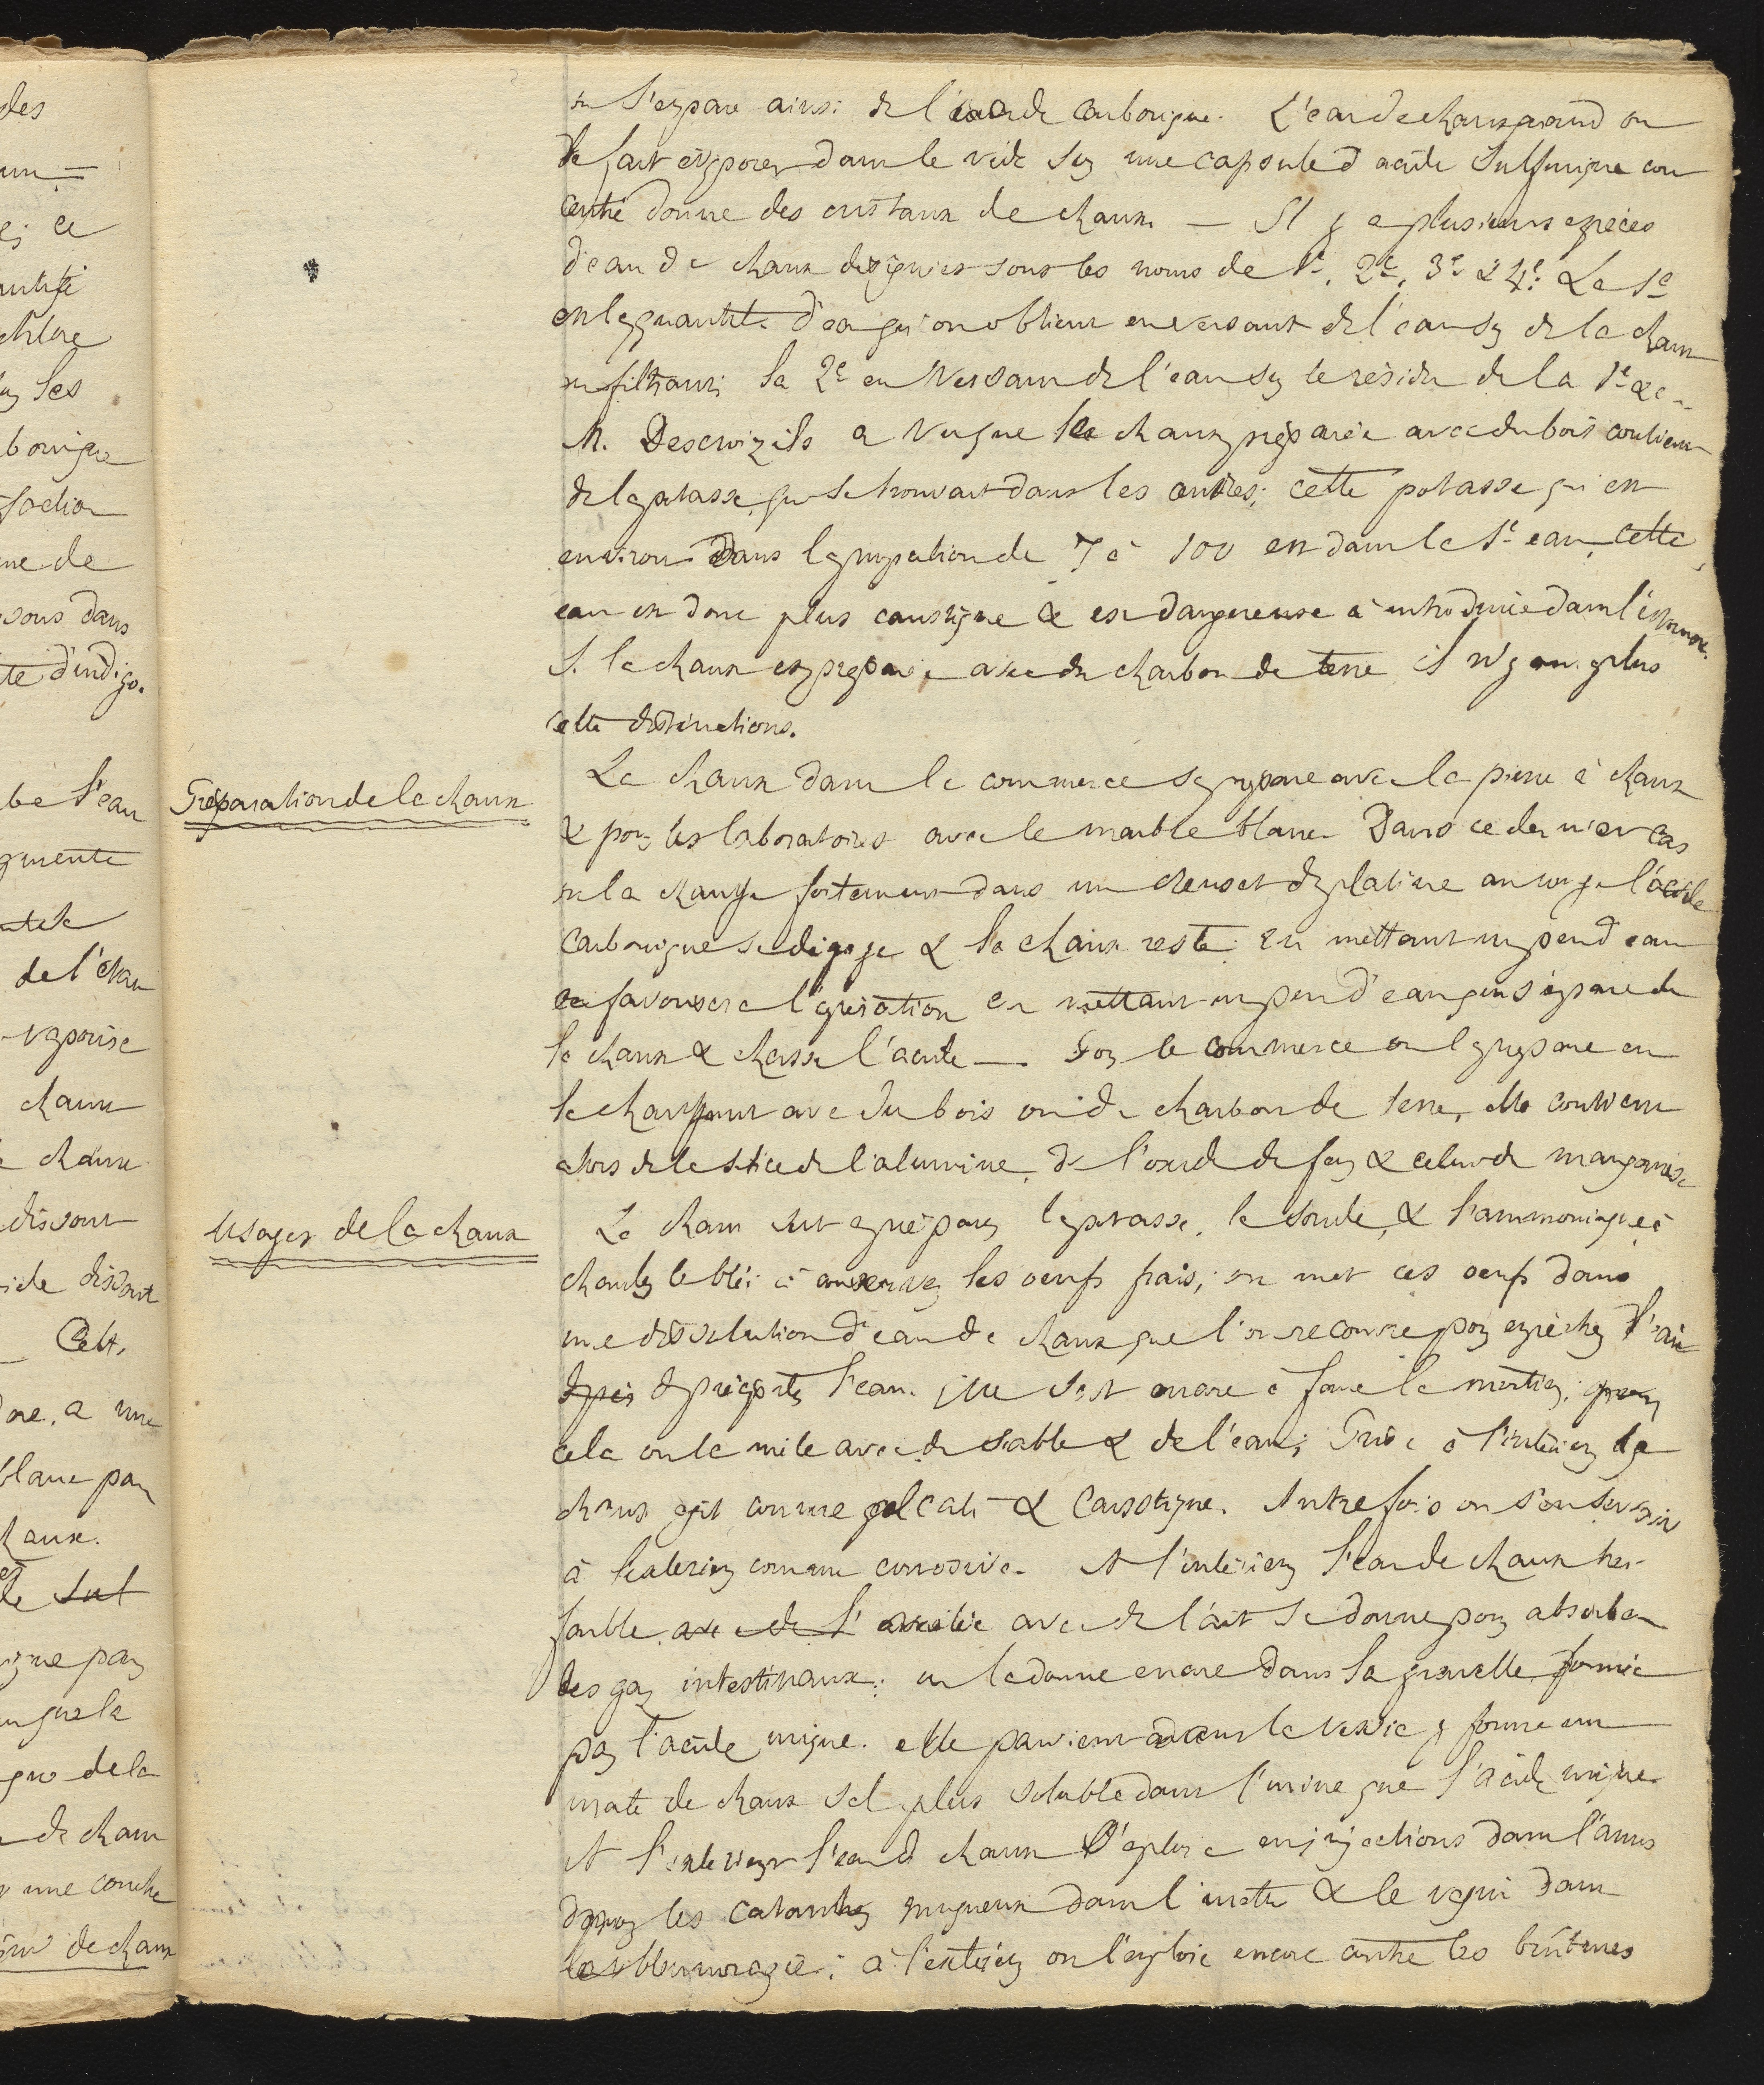 on sépare ainsi de l'acide carbonique. L'eau de chaux quand on
le fait évaporer dans le vide sur une capsule d'acide sulfurique con
centré donne des cristaux de chaux. — Il y a plusieurs espèces
d'eau de chaux désignées sous les noms de 1e, 2e, 3e & 4e. La 1e
est la quantité d'eau qu'on obtient en versant de l'eau sur de la chaux
en filtrant; la 2e en versant de l'eau sur le résidu de la 1e &c.
M. Descroizils a vu que la chaux préparée avec du bois contient
de la potasse, qui se trouvait dans les cendres; cette potasse qui est
environ dans la proportion de 7 à 100 est dans la 1e eau, cette
eau est donc plus caustique & est dangereuse à introduire dans l'estomac.
Si la chaux est préparée avec du charbon de terre il n'y a plus
cette distinctions.
Préparation de la chaux
La chaux dans le commerce se prépare avec la pierre à chaux
& pour les laboratoires avec le marbre blanc. Dans ce dernier cas
on la chauffe fortement dans un creuset de platine au rouge l'acide
carbonique se dégage & la chaux reste: en mettant un peu d'eau
favorisera l'opération en mettant un peu d'eau qui s'empare de
la chaux & chasse l'acide —. Pour le commerce on la prépare en
la chauffant avec du bois ou du charbon de terre, elle contient
alors de la silice de l'alumine, de l'oxide de fer & celui de manganèse
Usages de la chaux
La chaux sert à préparer la potasse, la soude, & l'ammoniaque à
chauler le blé; à conserver les oeufs frais; on met ces oeufs dans
une dissolution d'eau de chaux que l'on recouvre pour empêcher l'air
de précipiter l'eau. Elle sert encore à faire le mortier; pour
cela on la mêle avec du sable & de l'eau; Prise à l'intérieur la
chaux agit comme alcali & caustique. Autrefois on s'en servait
à l'extérieur comme corrosive. A l'intérieur l'eau de chaux très
faible avec de l' avec du lait se donne pour absorber
les gaz intestinaux: on la donne encore dans la gravelle formée
par l'acide urique. elle parvient dans la vessie y forme un
urate de chaux sel plus soluble dans l'urine que l'acide urique.
A l'extérieur l'eau de chaux s'emploie en injections dans l'anus
pour les catarrhes muqueux dans l'urètre & le vagin dans
la blennorragie; à l'extérieur on l'emploie encore contre les brûlures